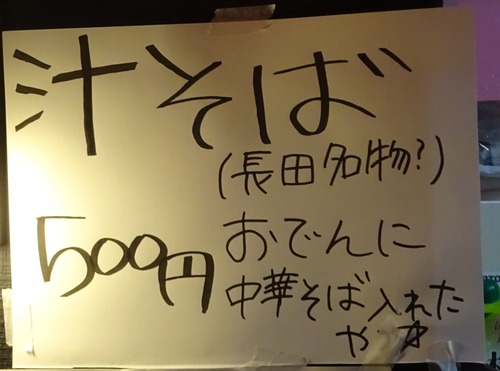 汁そば
(長田名物?)
500円
おでんに
中華そば入れた